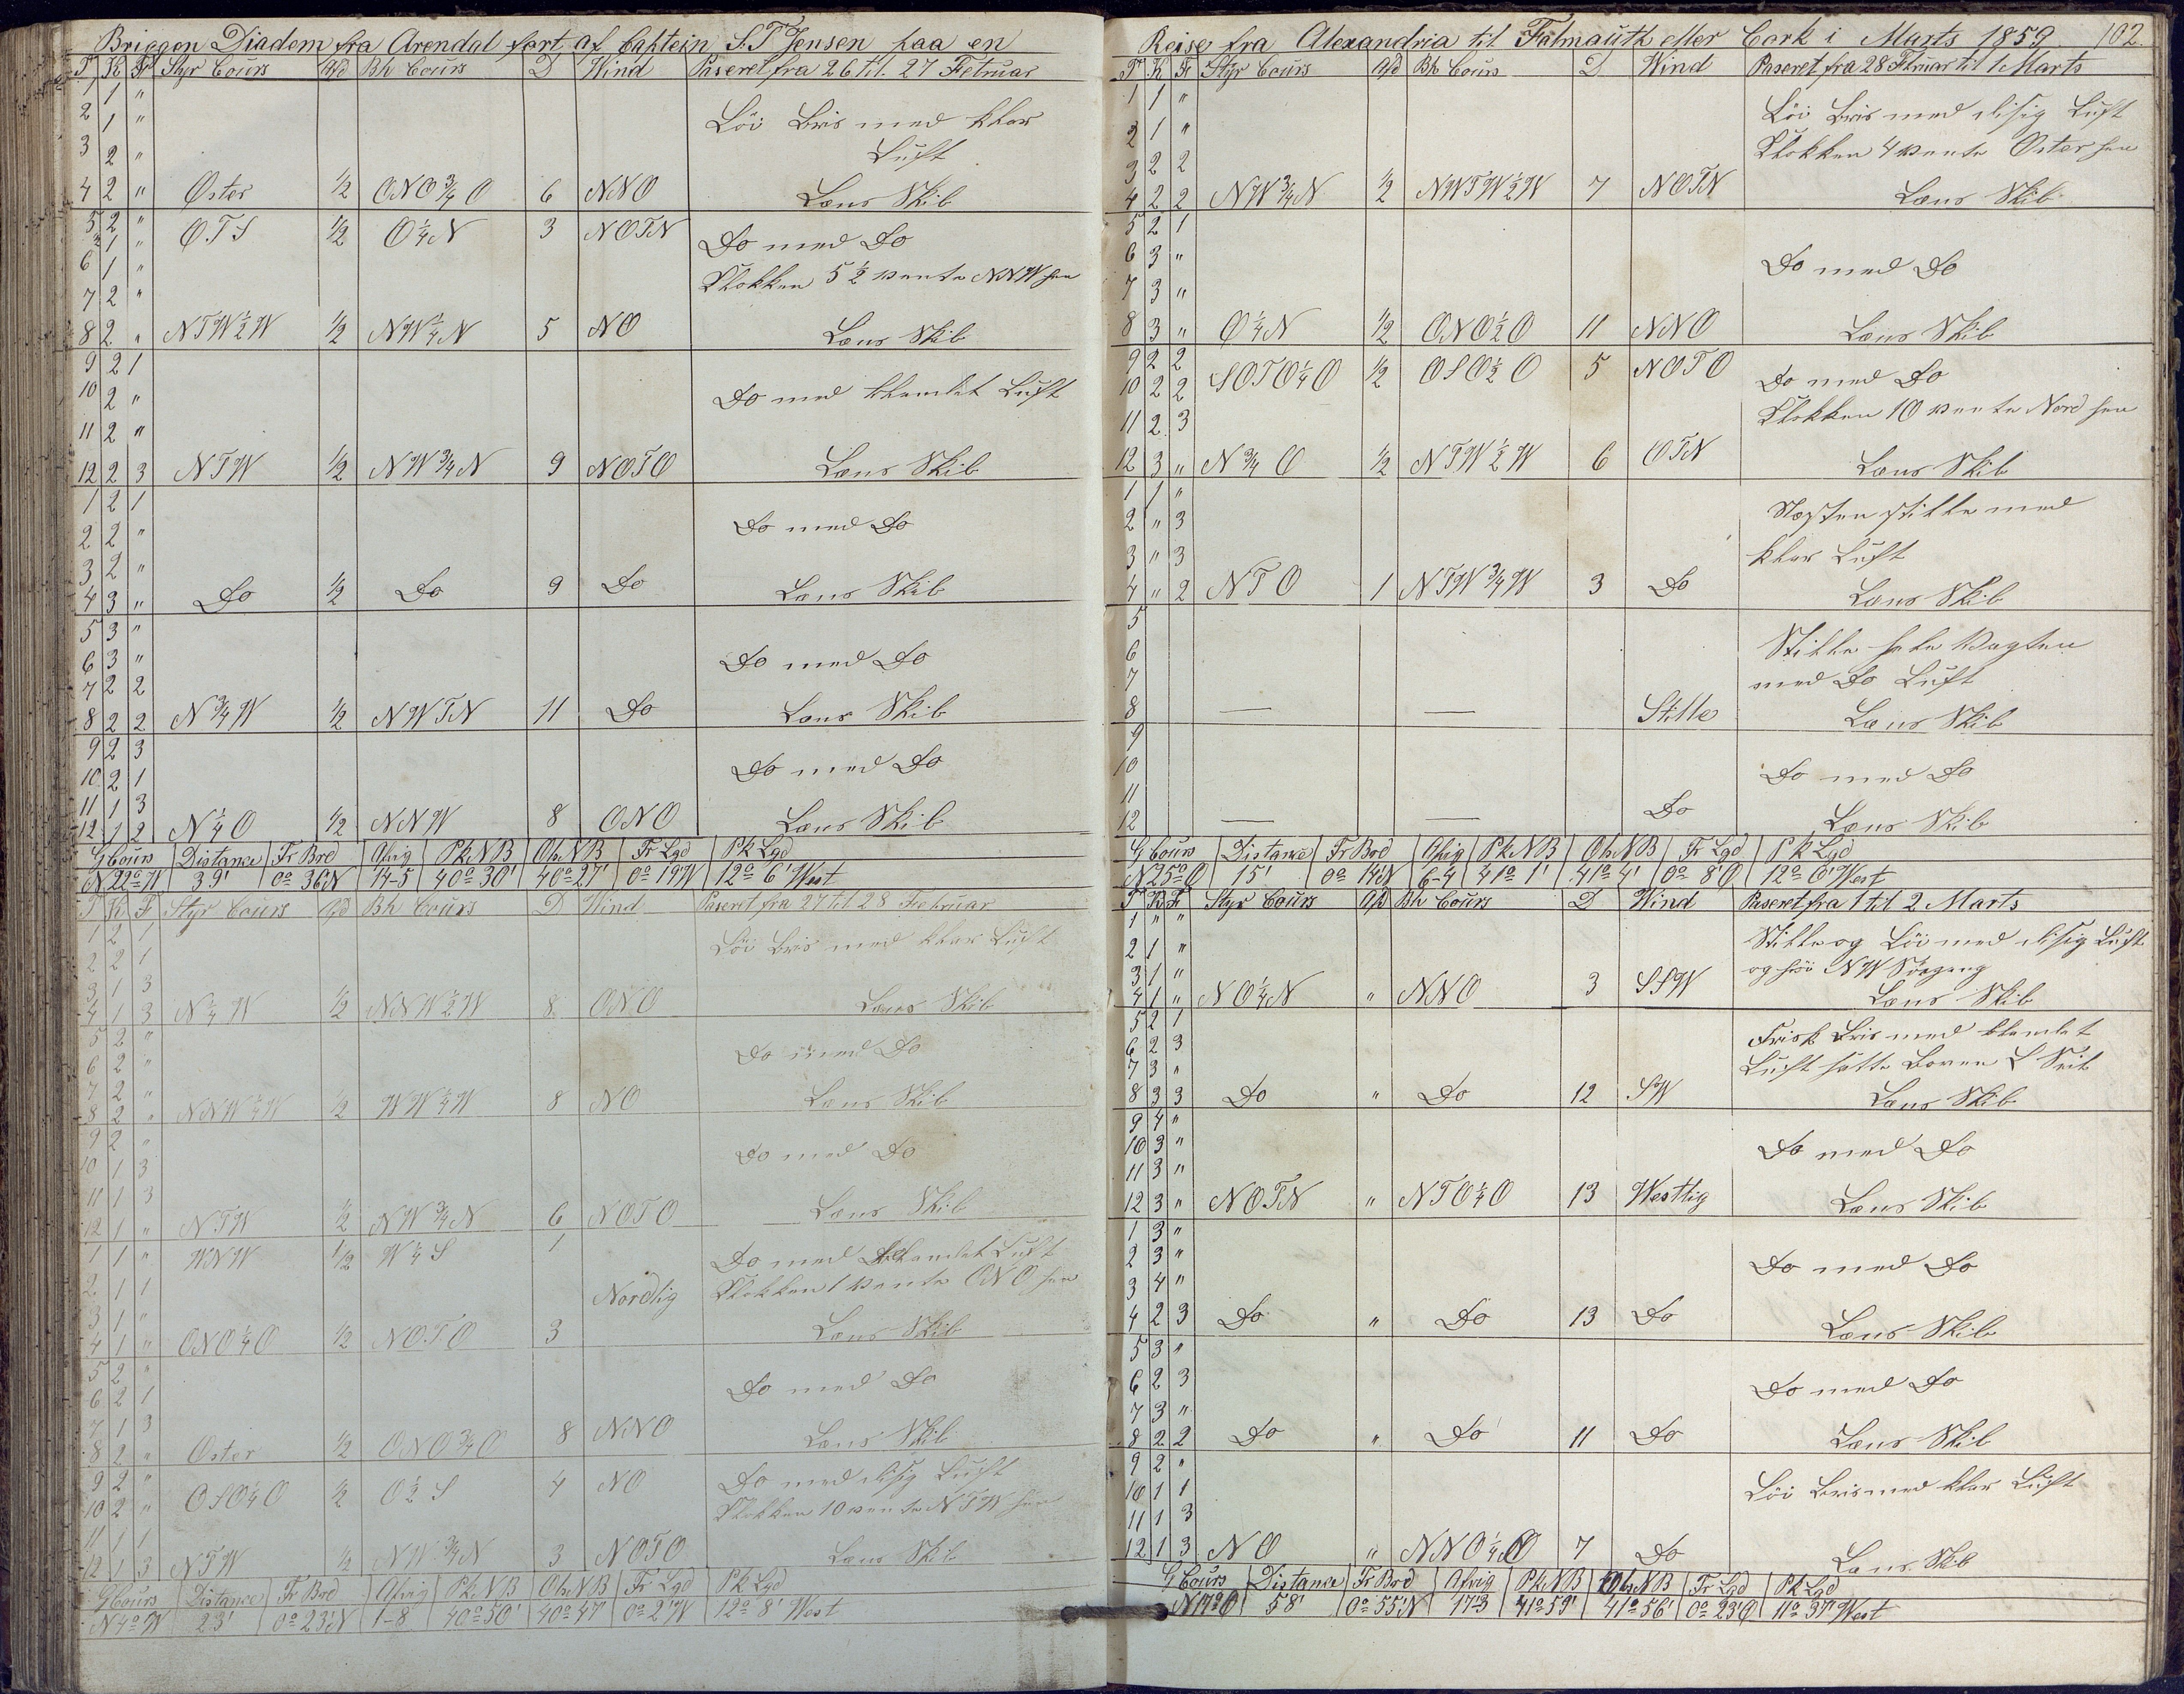 Briggen Diadem fra Arendal ført af Captein S. T Jensen paa en
T K Fr Styr Cours Afd Bh Cours D Wind Paseret fra 26 til 27 Februar
1 1 "
2 1 " Løi Bris med klar
3 2 " Luft
4 2 " Oster ½ ONO¾O 6 NNO Læns Skib
5 2 " OTS ½ O¼N 3 NOTN Do med Do
½ 1 "
6 1 " Klokken 5½ vente NNW hen
7 2 "
8 2 " NTW½W ½ NW¼N 5 NO Læns Skib
9 2 1
10 2 " Do med Skemlet Luft
11 2 "
12 2 3 NTW ½ NW¾N 9 NOTO Læns Skib
1 2 1
2 2 " Do med Do
3 2 "
4 3 " Do ½ Do 9 Do Læns Skib
5 3 "
6 3 " Do med Do
7 2 2
8 2 2 N¾W ½ NWTN 11 Do Læns Skib
9 2 3
10 2 1 Do med Do
11 1 3
12 1 2 N¼O ½ NNW 8 ONO Læns Skib
G Cours Distance Fr Brd Afvig Pk NB Obs NB Fr Lgd Pk Lgd
N 22° W 39' 0° 36'N 14-5 40° 30' 40° 27' 0° 19'W 12° 6' West
T K F Styr Cours Afd Bh Cours D Wind Paseret fra 27 til 28 Februar
1 2 1 Løi Bris med klar Luft
2 2 1
3 1 3
4 1 3 N¼W ½ NNW½W 8 ONO Læns Skib
5 2 "
6 2 " Do med Do
7 2 "
8 2 " NNW¼W ½ WW¼W 8 NO Læns Skib
9 2 "
10 1 3 Do med Do
11 1 3
12 1 " NTW ½ NW¾N 6 NOTO Læns Skib
1 1 " WNW ½ W¼S 1 Do med Skemlet Luft
2 1 1 Nordlig Klokken 1 vente ONO hen
3 1 "
4 1 " ONO¼O ½ NOTO 3 Læns Skib
5 2 "
6 2 1 Do med Do
7 1 3
8 2 " Oster ½ ONO¾O 8 NNO Læns Skib
9 2 " Do med disig Luft
10 2 " OSO¼O ½ O½S 4 NO Klokken 10 vente NTW hen
11 1 1
12 1 3 NTW ½ NW¾N 3 NOTO Læns Skib
G Cours Distance Fr Brd Afvig Pk NB Obs NB Fr Lgd Pk Lgd
N 4° W 23' 0° 23'N 1-8 40° 50' 40° 47' 0° 2'W 12° 8' West
Reise fra Alexandria til Falmauth eller Cork i Marts 1859 102.
T K Fr Styr Cours Afd Bh Cours D Wind Paseret fra 28 Februar til 1 Marts
1 1 " Løi Bris med disig Luft
2 1 " Klokken 4 vente Oster hen
3 2 2
4 2 2 NW¾N ½ NWTW½W 7 NOTN Læns Skib
5 2 1
6 3 " Do med Do
7 3 "
8 3 " O¼N ½ ONO½O 11 NNO Læns Skib
9 2 2
10 2 2 SOTO¼O ½ OSO½O 5 NOTO Do med Do
11 2 3 Klokken 10 vente Nord hen
12 3 " N¾O ½ NTW½W 6 OTN Læns Skib
1 1 " Næsten stille med
2 " 3
3 " 3 klar Luft
4 " 2 NTO 1 NTW¾W 3 Do Læns Skib
5
6 Stille hele Vagten
7 med Do Luft
8 — — Stille Læns Skib
9
10 Do med Do
11
12 — — Do Læns Skib
G Cours Distance Fr Brd Afvig Pk NB Obs NB Fr Lgd Pk Lgd
N 25° O 15' 0° 14'N 6-4 41° 1' 41° 4' 0° 8'O 12° 0' West
T K F Styr Cours Afd Bh Cours D Wind Paseret fra 1 til 2 Marts
1 " " Stille og Løi med disig Luft
2 1 "
3 1 " og høi NW Søegang
4 1 " NO¼N " NNO 3 SSW Læns Skib
5 2 1
6 2 3 Frisk Bris med Skemlet
7 3 " Luft satte Boven L Seil
8 3 3 Do " Do 12 SW Læns Skib
9 4 "
10 3 " Do med Do
11 3 "
12 3 " NOTN " NTO¼O 13 Westlig Læns Skib
1 3 "
2 3 " Do med Do
3 4 "
4 2 3 Do " Do 13 Do Læns Skib
5 3 "
6 2 3 Do med Do
7 3 "
8 2 2 Do " Do 11 Do Læns Skib
9 2 "
10 1 1 Løi Bris med klar Luft
11 1 3
12 1 3 NO " NNO¼O 7 Do Læns Skib
G Cours Distance Fr Brd Afvig Pk NB Obs NB Fr Lgd Pk Lgd
N 17° O 58' 0° 55'N 17-3 41° 59' 41° 56' 0° 23'O 11° 37' West